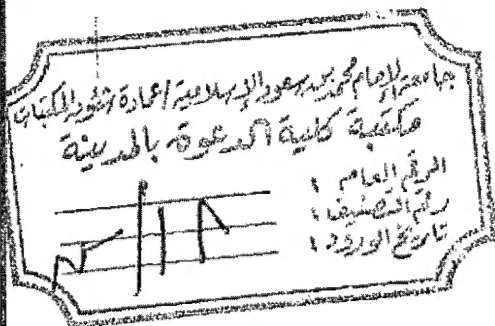 جامعة الإمام محمد بن سعود الإسلامية / عمادة شئون المكتبات
مكتبة كلية الدعوة بالمدينة
الرقم العام :
رقم التصنيف :
تاريخ الورود :